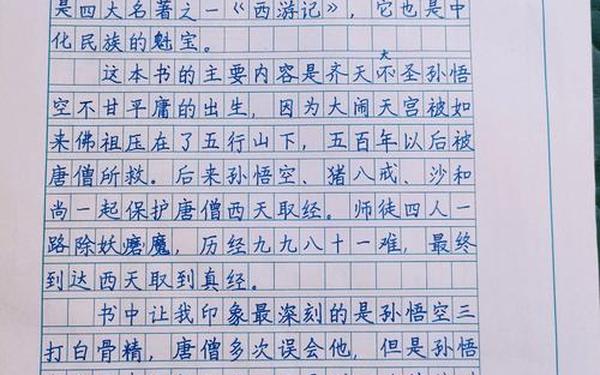 是四大名著之一《西游记》，它也是中
化民族的魅宝。
这本书的主要内容是齐天大不圣孙悟
空不甘平庸的出生，因为大闹天宫被如
来佛祖压在了五行山下，五百年以后被
唐僧所救。后来孙悟空、猪八戒、沙和
尚一起保护唐僧西天取经。师徒四人一
路除妖磨魔，历经九九八十一难，最终
到达西天取到真经。
书中让我印象最深刻的是孙悟空三
打白骨精，唐僧多次误会他，但是孙悟